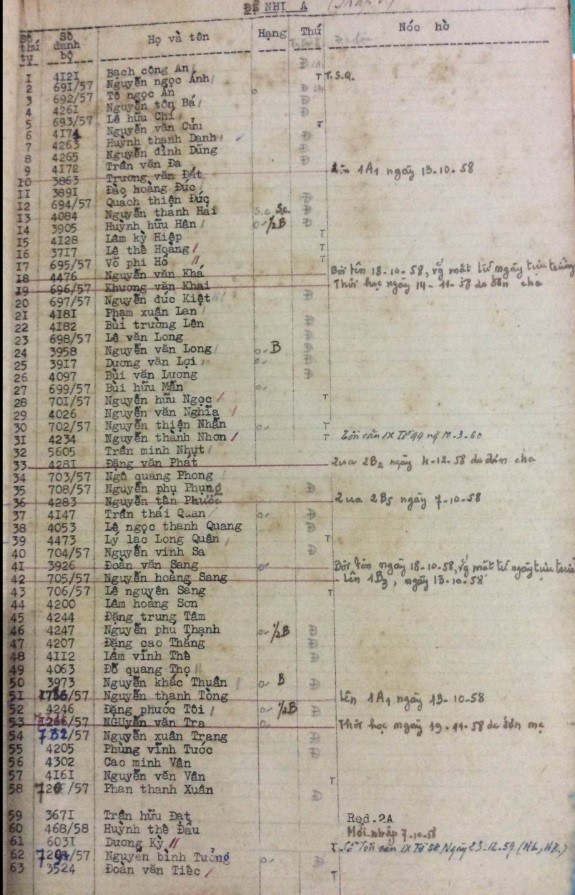 ĐỆ NHỊ A
Số thứ tự Số danh bộ Họ và tên Hạng Thứ Nóc hờ
1 4121 Bạch công An T T.S.Q.
2 691/57 Nguyễn ngọc Ánh
3 692/57 Tô ngọc Ẩn
4 4261 Nguyễn tôn Bá
5 693/57 Lê hữu Chí T
6 4174 Nguyễn văn Cửu
7 4263 Huỳnh thanh Danh
8 4265 Nguyễn đình Dũng
9 4172 Trần văn Đa
10 3863 Trương văn Đát Lên 1A1 ngày 13-10-58
11 3891 Đào hoàng Đức
12 694/57 Quách thiện Đức
13 4084 Nguyễn thanh Hải
14 3905 Huỳnh hữu Hân 1/2B T
15 4128 Lâm kỳ Hiệp T
16 3717 Lê thế Hoàng T
17 695/57 Võ phi Hổ T
18 4476 Nguyễn văn Khá Bôi tên 18-10-58, vắng mặt từ ngày tựu trường
19 696/57 Khương văn Khai Thôi học ngày 14-11-58 do đơn cha
20 697/57 Nguyễn đức Kiệt
21 4181 Phạm xuân Lan
22 4182 Bùi trường Lên
23 698/57 Lê văn Long
24 3958 Nguyễn văn Long B
25 3917 Dương văn Lợi
26 4097 Bùi văn Lương
27 699/57 Bùi hữu Mẫn
28 701/57 Nguyễn hữu Ngọc T
29 4026 Nguyễn văn Nghĩa
30 702/57 Nguyễn thiện Nhẫn T
31 4234 Nguyễn thành Nhơn T
32 5605 Trần minh Nhựt
33 4281 Đặng văn Phát Qua 2B2 ngày 4-12-58 do đơn cha
34 703/57 Ngô quang Phong
35 708/57 Nguyễn phụ Phụng
36 4283 Nguyễn tấn Phước Qua 2B5 ngày 7-10-58
37 4147 Trần thái Quan
38 4053 Lê ngọc thanh Quang
39 4473 Lý lạc Long Quân T
40 704/57 Nguyễn vinh Sa
41 3926 Đoàn văn Sang Bôi tên ngày 18-10-58, vắng mặt từ ngày tựu trường
42 705/57 Nguyễn hoàng Sang Lên 1B3, ngày 13-10-58
43 706/57 Lê nguyên Sáng T
44 4200 Lâm hoàng Sơn
45 4244 Đặng trung Tâm
46 4247 Nguyễn phú Thạnh 1/2B
47 4207 Đặng cao Thăng
48 4112 Lâm vĩnh Thế
49 4063 Đỗ quang Thọ
50 3973 Nguyễn khắc Thuần B
51 /57 Nguyễn thanh Tòng Lên 1A1 ngày 13-10-58
52 4246 Đặng phước Tôi 1/2B
53 /57 Nguyễn văn Tra Thôi học ngày 19-11-58 do đơn mẹ
54 732/57 Nguyễn xuân Trang
55 4205 Phùng vĩnh Tước
56 4302 Cao minh Vân
57 4161 Nguyễn văn Vân T
58 /57 Phan thanh Xuân
59 3671 Trần hữu Đạt Red.2A
60 468/58 Huỳnh thế Đấu Mới nhập 7-10-58
61 6031 Dương Kỳ T
62 /57 Nguyễn bình Tưởng
63 3524 Đoàn văn Tiếc T